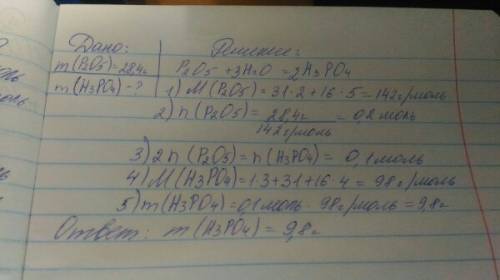 Дано:
Решение:
m(P2O5)=28,4г
P2O5 +3H2O =2H3PO4
m(H3PO4)-?
1) M(P2O5)=31·2+16·5=142г/моль
2) n(P2O5)= 28,4г / 142г/моль =0,2моль
3) 2n(P2O5)=n(H3PO4)= 0,1моль
4) M(H3PO4)=1·3+31+16·4=98г/моль
5) m(H3PO4)=0,1моль·98г/моль=9,8г
Ответ: m(H3PO4)=9,8г